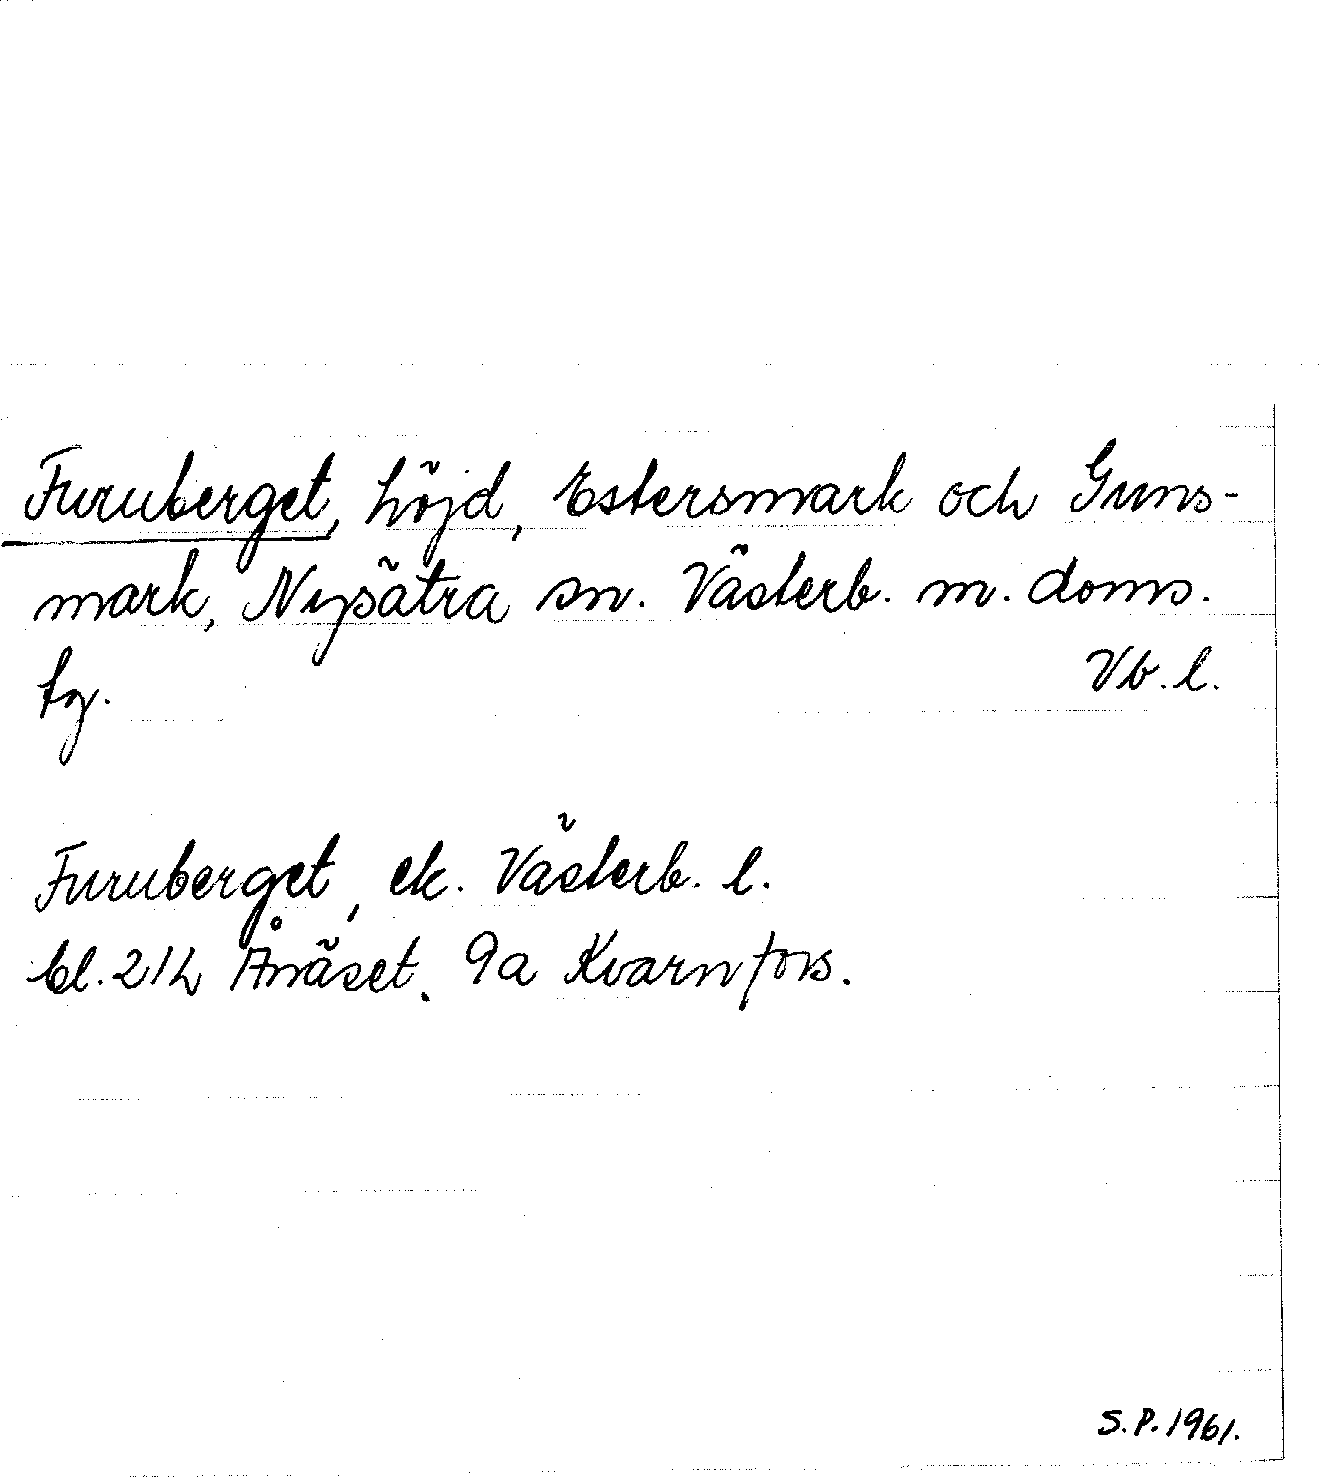 Furuberget, höjd, Estersmark och Guns-
mark, Nysätra sn. Västerb. m. doms.
fg.
Vb. l.
Furuberget, ek. Västerb. l.
bl. 21L Ånäset. 9a Kvarnfors.
S.P. 1961.